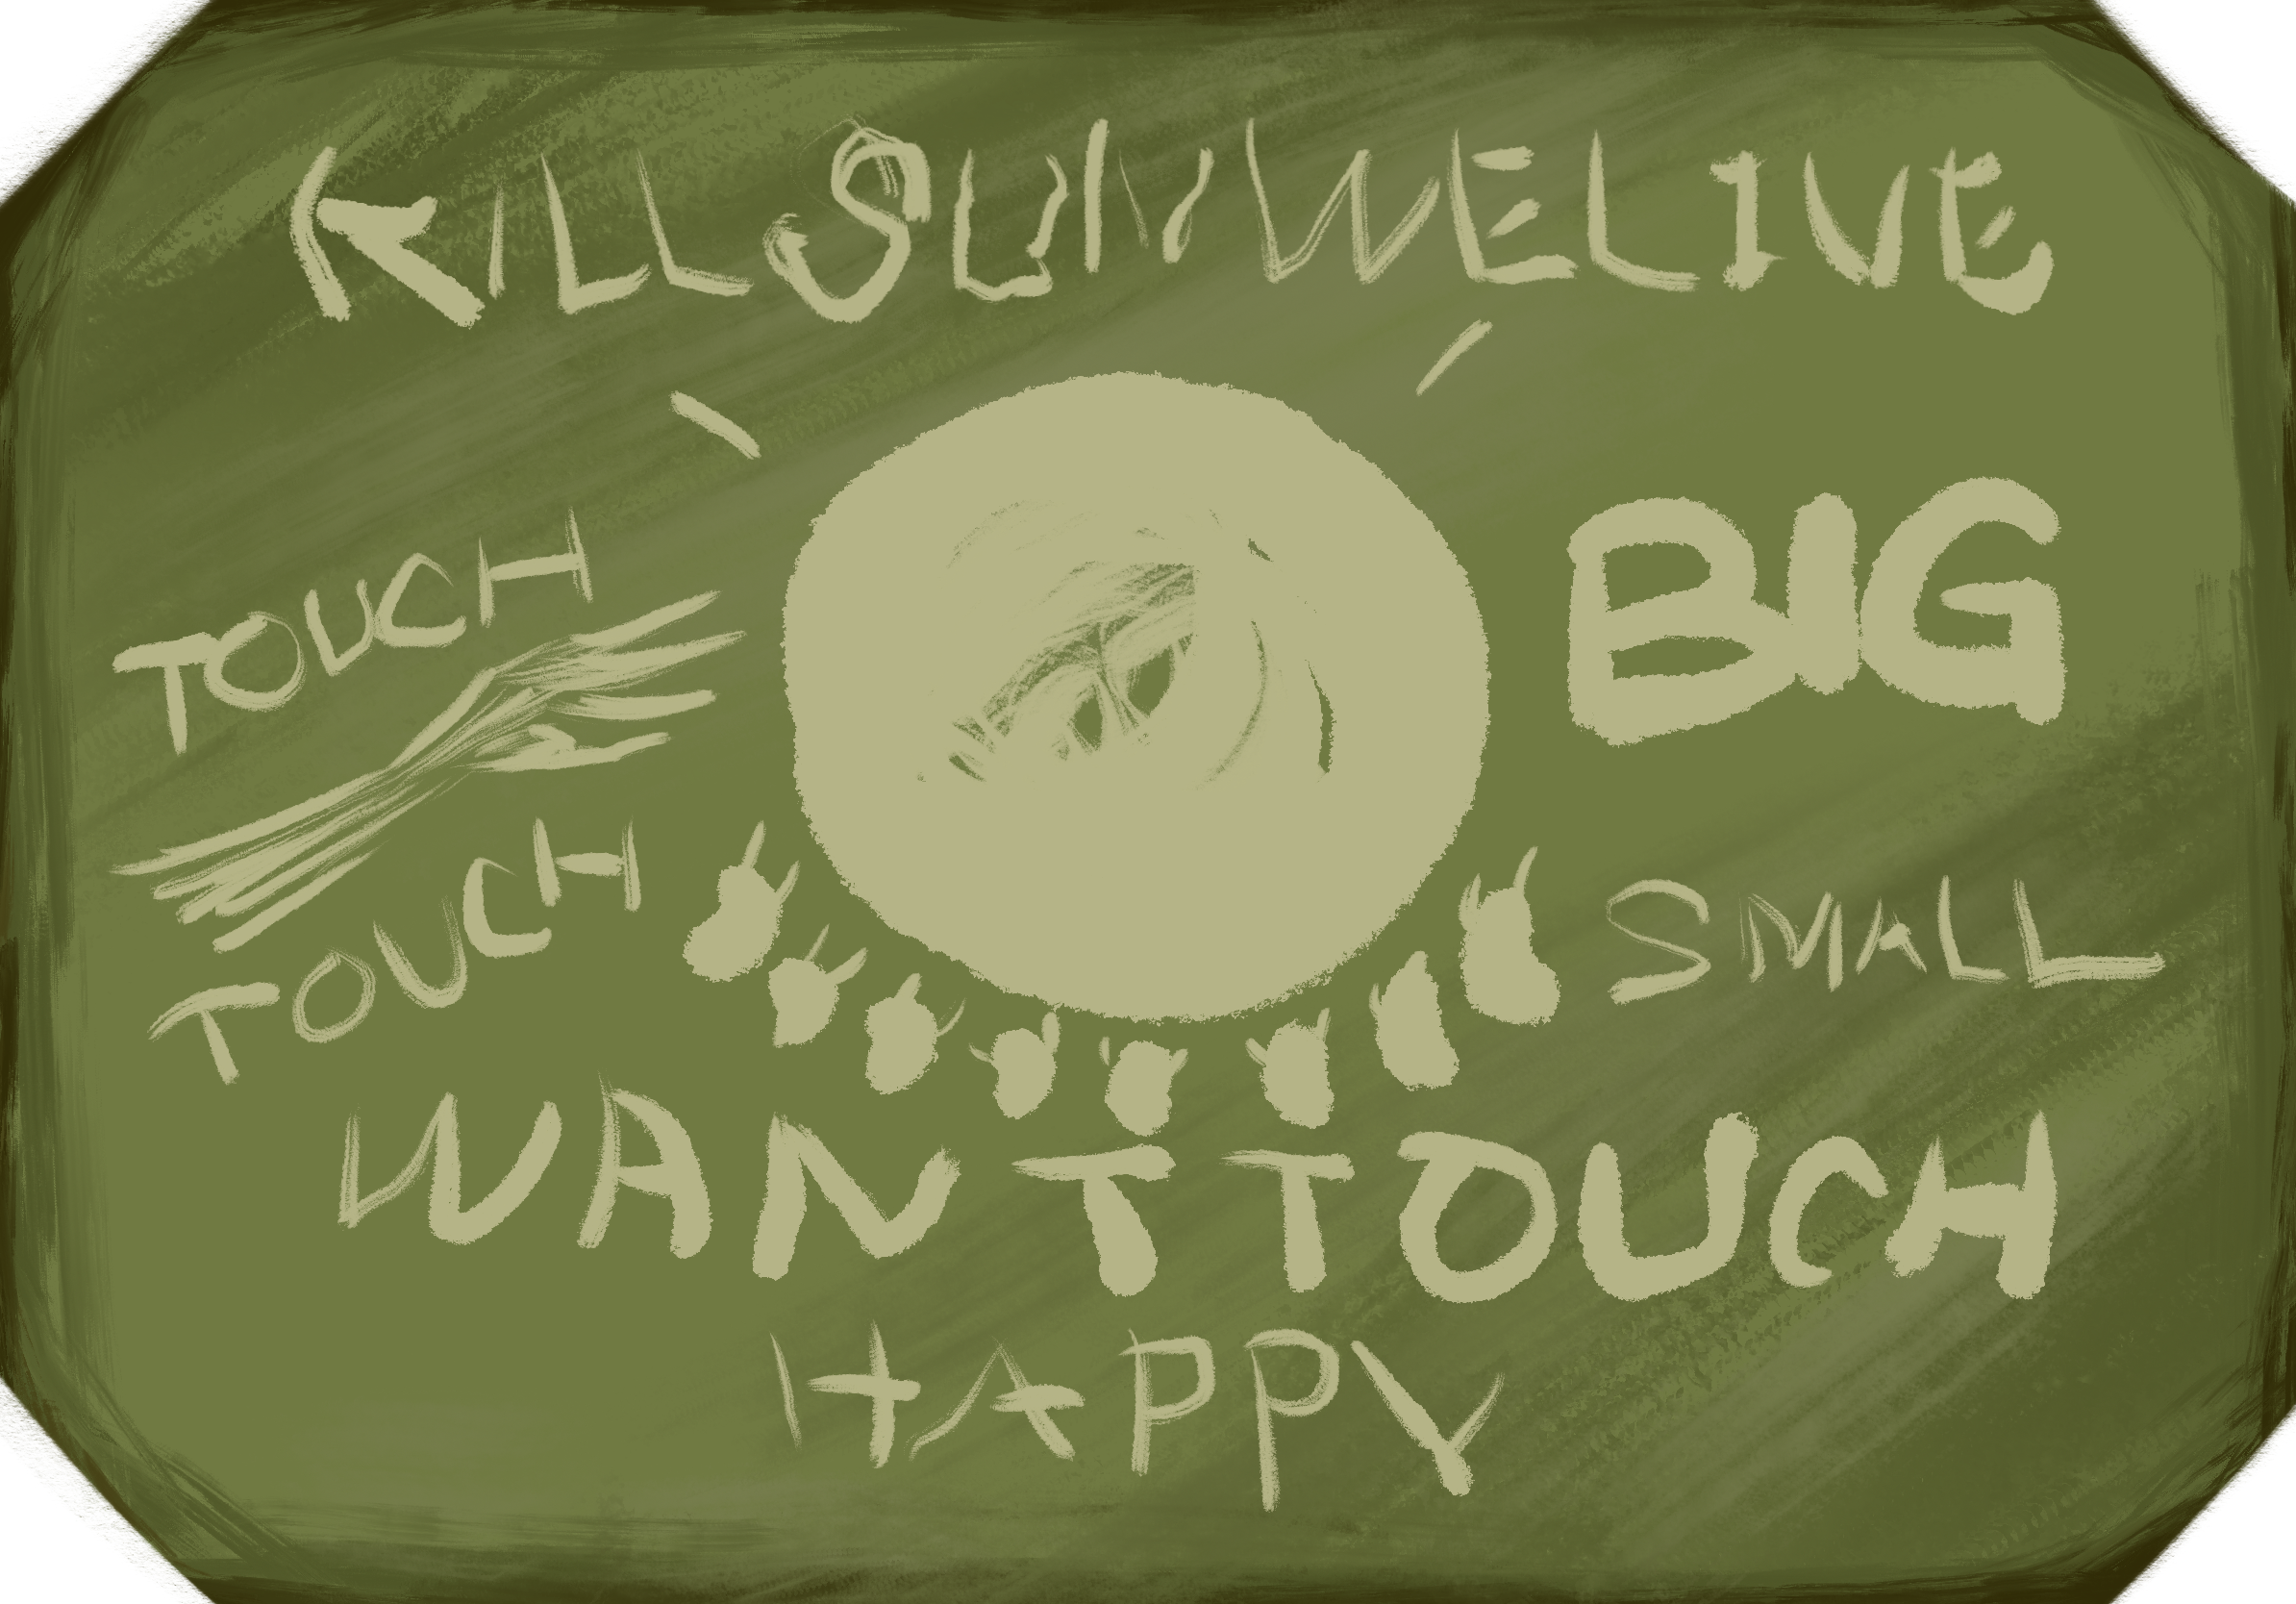 KILL SUN WE LIVE
TOUCH
BIG
TOUCH
SMALL
WANT TOUCH
HAPPY